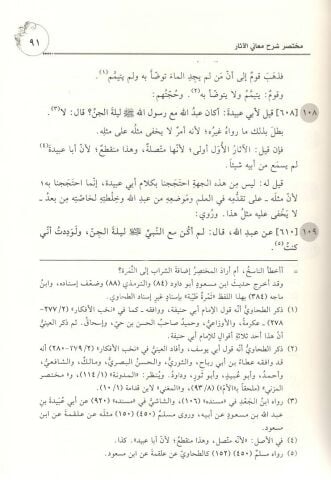 مختصر شرح معاني الآثار
٩١
فذهب قومٌ إلى أنّ مَن لم يجدِ الماءَ توضّأ به ولم يتيمَّم (١).
وقومٌ: يتيمَّمُ ولا يتوضّأ به (٢). وحُجّتُهم:
١٠٨ [٦٠٨] قيل لأبي عبيدةَ: أكان عبدُ الله مع رسول الله ﷺ ليلةَ الجنِّ؟ قال: لا (٣).
بطلَ بذلك ما رواهُ غيرُه؛ لأنه أمرٌ لا يخفى مثلُه على مثلِه.
فإن قيل: الآثارُ الأُوَل أولى؛ لأنها متّصلة، وهذا منقطع؛ لأنّ أبا عبيدة (٤)
لم يسمع من أبيه شيئاً.
قيل له: ليس من هذه الجهةِ احتججنا بكلام أبي عبيدة، إنّما احتججنا به؛
لأنّ مثلَه - على تقدُّمِه في العلم وموضعِه من عبدِ الله وخِلْطتِه لخاصّتِه من بعدُ -
لا يَخفى عليه مثلُ هذا. ورُوي:
١٠٩ [٦١٠] عن عبدِ الله، قال: لم أكن مع النبيِّ ﷺ ليلةَ الجنِّ، ولَوَدِدتُ أنّي
كنتُ (٥).
= أأخطأ الناسخُ، أم أراد المختصِرُ إضافةَ الشرابِ إلى التمرة؟
وقد أخرج حديث ابن مسعود أبو داود (٨٤) والترمذي (٨٨) وضعّف إسناده، وابن
ماجه (٣٨٤) بهذا اللفظ «تمرةٌ طيّبة» بإسنادٍ غير إسناد الطحاوي.
(١) ذكر الطحاويُّ أنه قول أبي حنيفة، ووافقه - كما في «نخب الأفكار» (٢/٢٧٧-
٢٧٨) - عكرمةُ، والأوزاعيُّ، وحميدٌ صاحبُ الحسن بن حي، وإسحاقُ. ثم ذكر العينيُّ
أنّ هذا أحد ثلاثةِ أقوالٍ للإمام أبي حنيفة.
(٢) ذكر الطحاويُّ أنه قول أبي يوسف، وأفاد العينيُّ في «نخب الأفكار» (٢/٢٧٩-٢٨٠) أنه
قد وافقه عطاءُ بنُ أبي رباحٍ، والثوريُّ، والحسنُ البصريُّ، ومالكٌ، والشافعيُّ،
وأحمدُ، وأبو عُبيدٍ، وأبو ثورٍ، وداودُ. ويُنظر: «المدونة» (١/١١٤)، و«مختصر
المزني» (ملحقاً بـ«الأم») (٨/٩٣)، و«المغني» لابن قدامة (١/١٠).
(٣) رواه ابنُ الجَعْد في «مسنده» (١٠٦)، والشاشيُّ في «مسنده» (٩٢٠) عن أبي عُبيدة بنِ
عبد الله بن مسعود عن أبيه، وروى مسلم (٤٥٠) (١٥٠) مثلَه عن علقمة عن ابن
مسعود.
(٤) في الأصل: «لأنه متّصل، وهذا منقطع؛ لأنّ أبا عبيد». كذا.
(٥) رواه مسلم (٤٥٠) (١٥٢) كالطحاوي عن علقمة عن ابن مسعود.